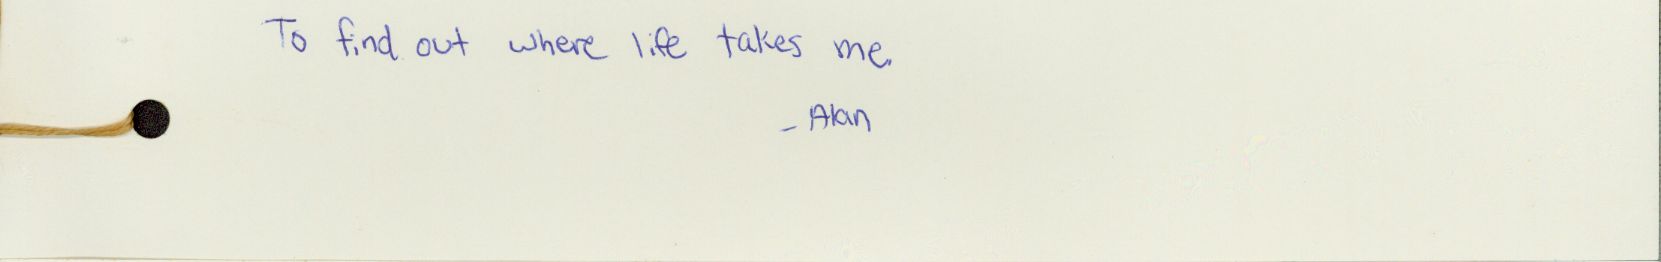 To find out where life takes me.
- Alan